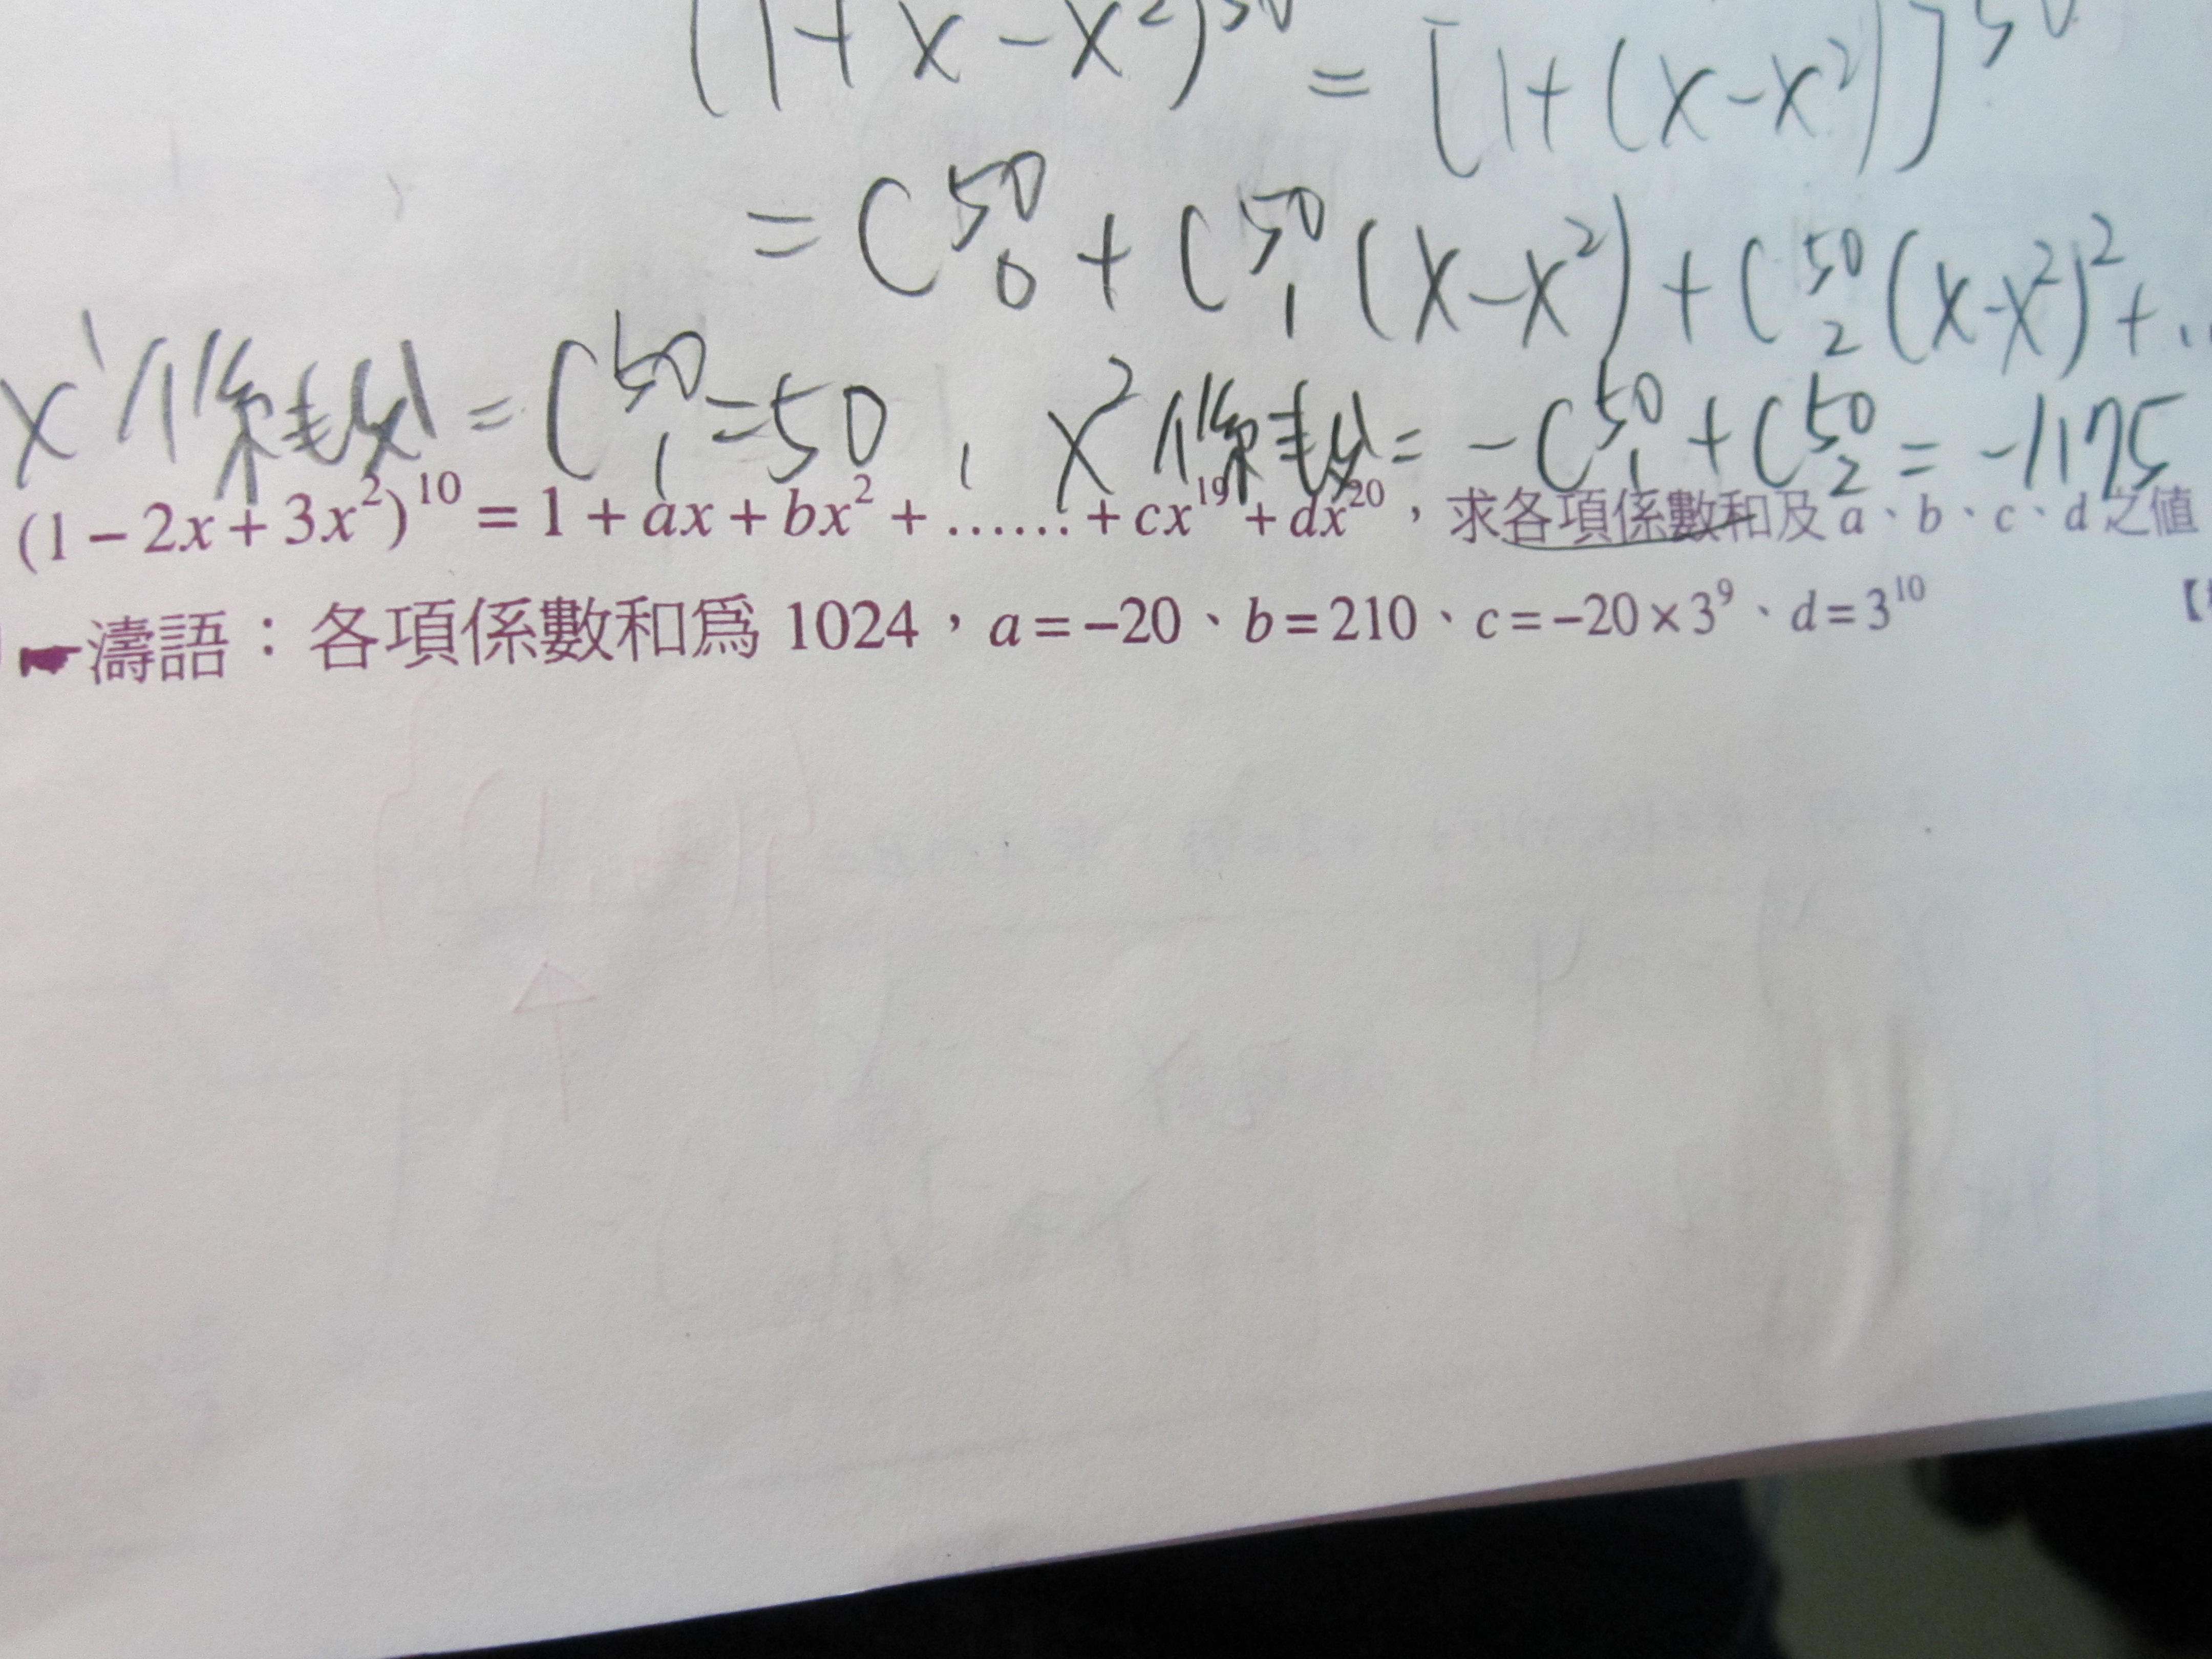 (1+x-x²)⁵⁰ = [1+(x-x²)]⁵⁰
= C⁵⁰₀ + C⁵⁰₁(x-x²) + C⁵⁰₂(x-x²)²+..
x¹係數 = C⁵⁰₁=50 , x²係數 = -C⁵⁰₁ + C⁵⁰₂ = -1175
(1-2x+3x²)¹⁰ = 1+ax+bx²+……+cx¹⁹+dx²⁰，求各項係數和及 a、b、c、d 之值
濤語：各項係數和為 1024，a=-20、b=210、c=-20×3⁹、d=3¹⁰ 【